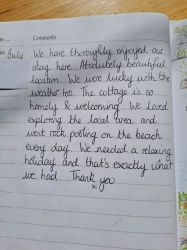 Comments
July We have thoroughly enjoyed our
stay here. Absolutely beautiful
location. We were lucky with the
weather too. The cottage is so
homely & welcoming. We loved
exploring the local area and
went rock pooling on the beach
every day. We needed a relaxing
holiday and that's exactly what
we had. Thank you
x